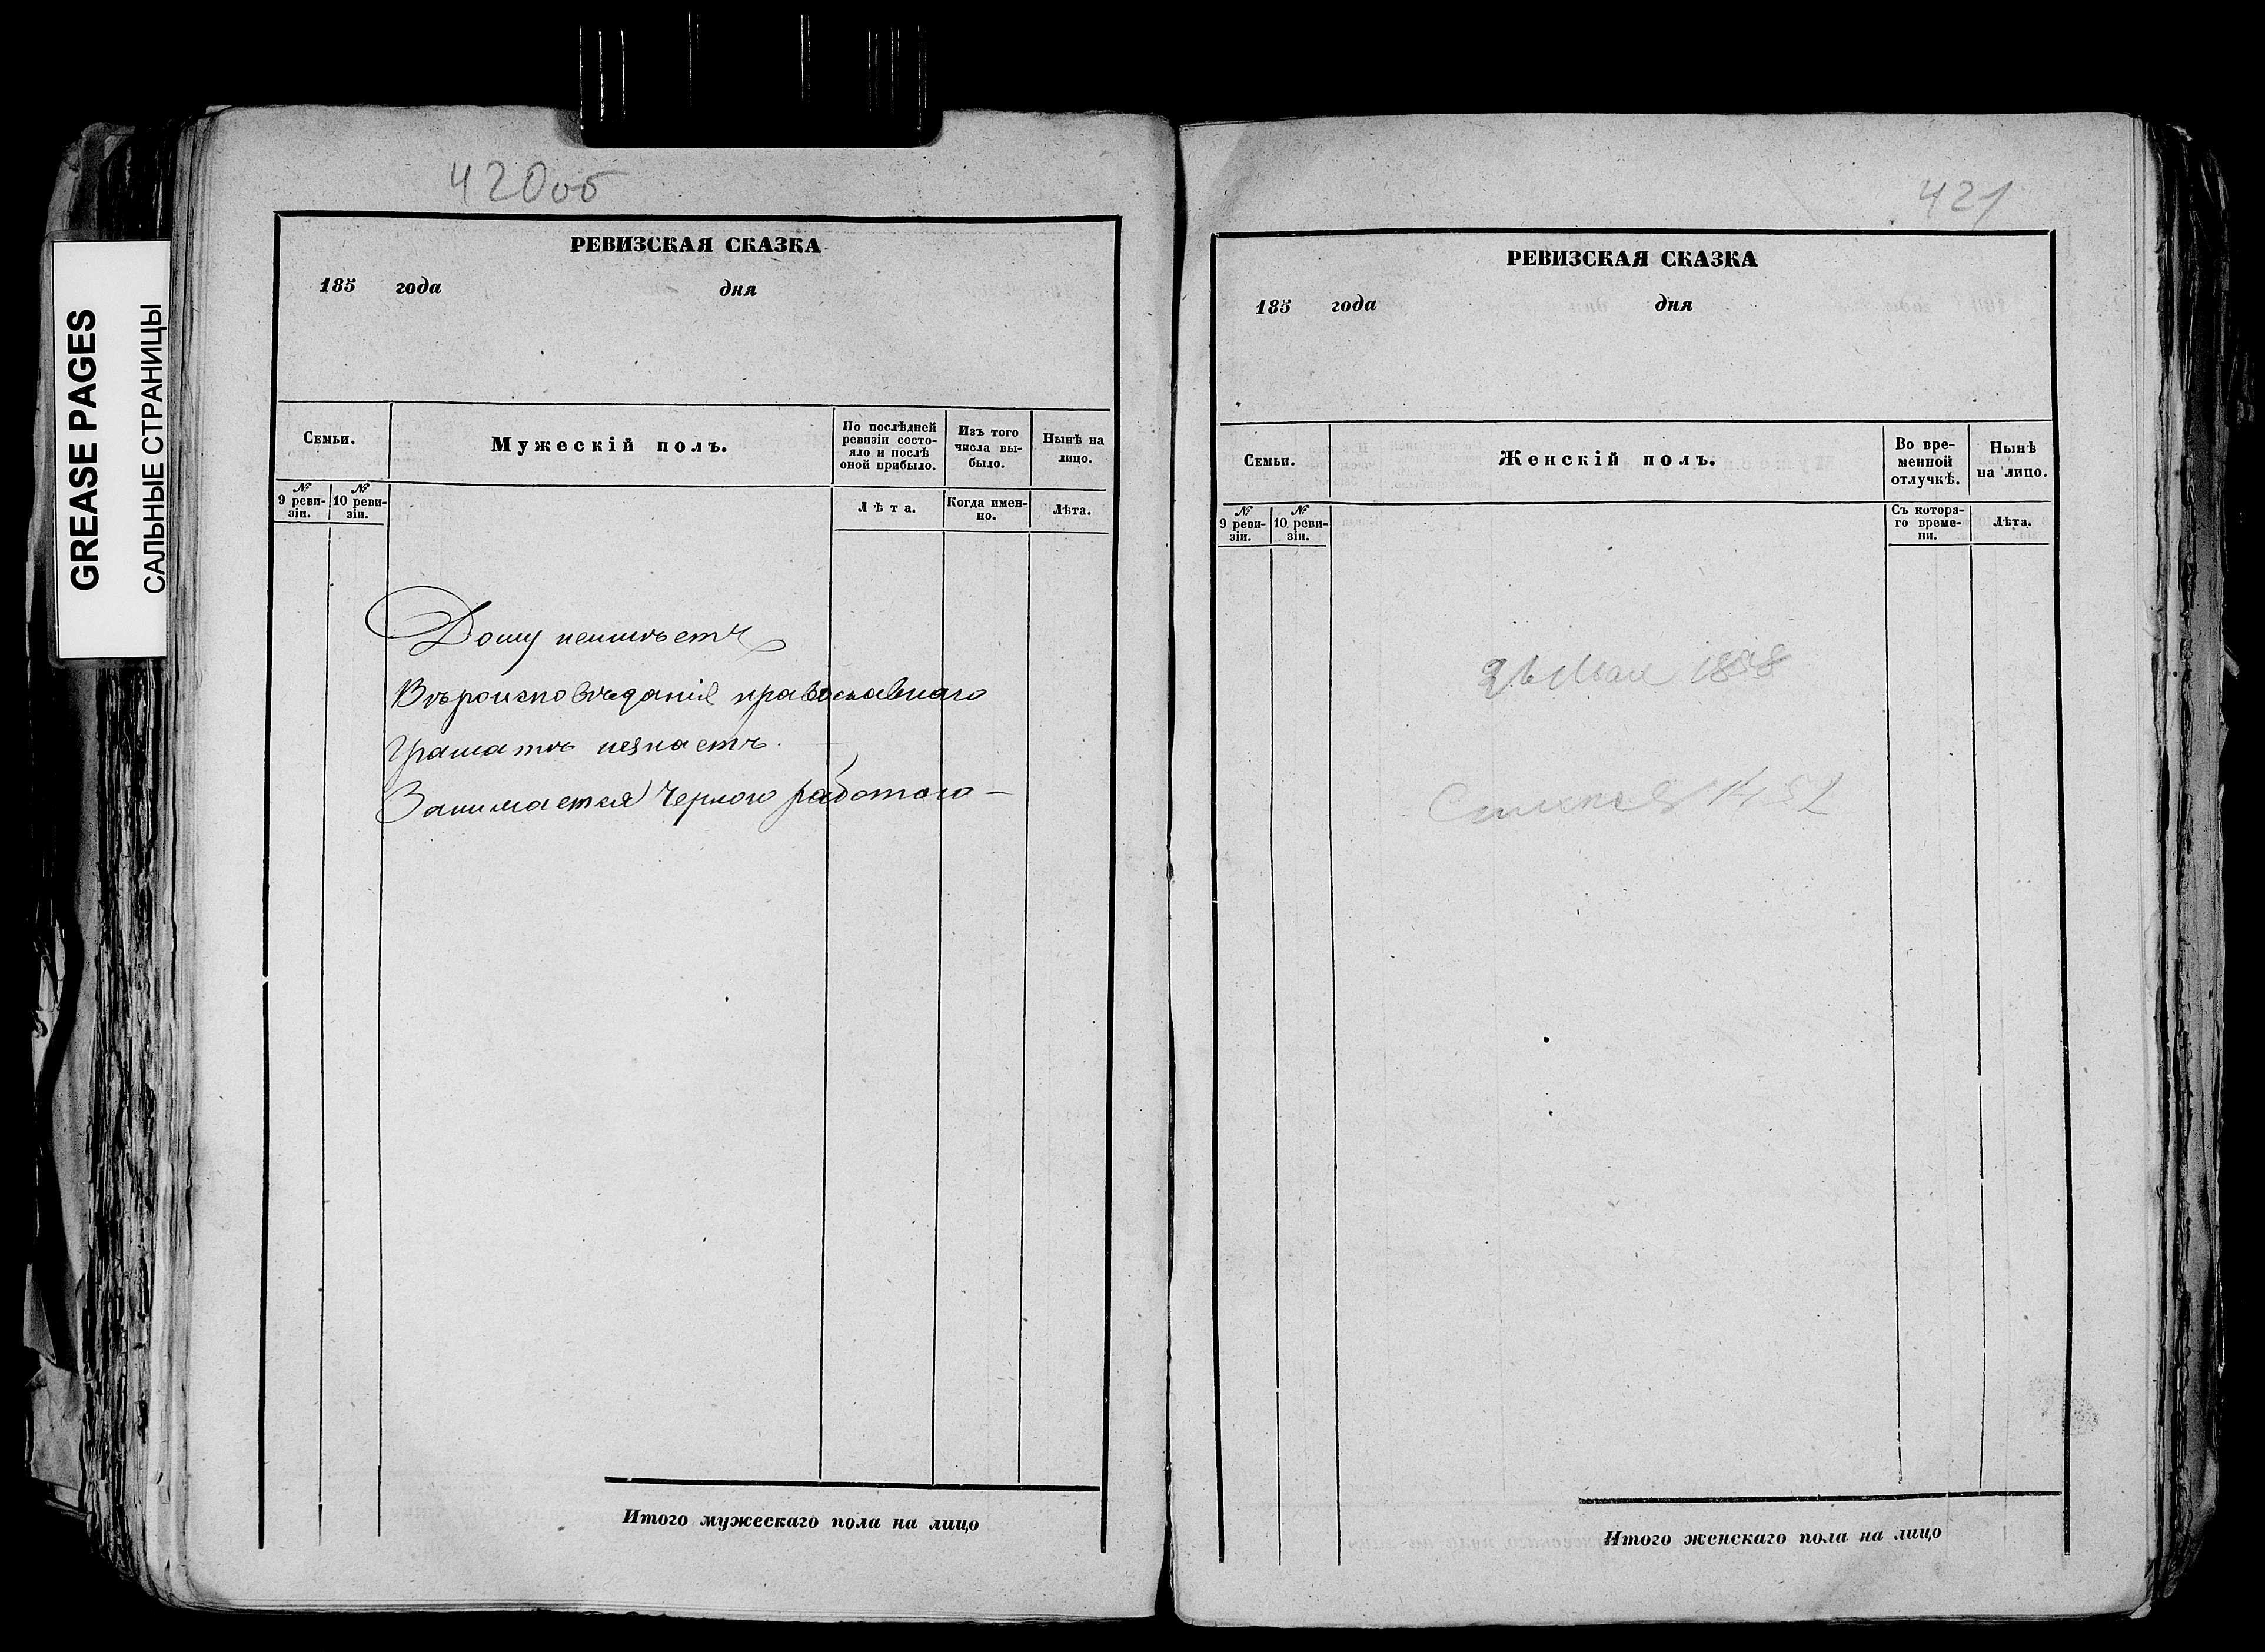 GREASE PAGES
САЛЬНЫЕ СТРАНИЦЫ
420об
РЕВИЗСКАЯ СКАЗКА
185 года дня
Семьи.
Мужескій полъ.
По послѣдней ревизіи состо-
яло и послѣ
оной прибыло.
Изъ того
числа вы-
было.
Нынѣ на
лицо.
№
9 реви-
зіи.
№
10 реви-
зіи.
Лѣта.
Когда имен-
но.
Лѣта.
Дому неимѣетъ
Вѣроисповѣданія православнаго
Грамотѣ незнаетъ.
Занимается Черною работою —
Итого мужескаго пола на лицо
421
РЕВИЗСКАЯ СКАЗКА
185 года дня
Семьи.
Женскій полъ.
Во вре-
менной
отлучкѣ.
Нынѣ
на лицо.
№
9 реви-
зіи.
№
10 реви-
зіи.
Съ котора-
го време-
ни.
Лѣта.
Мая 1858
Итого женскаго пола на лицо